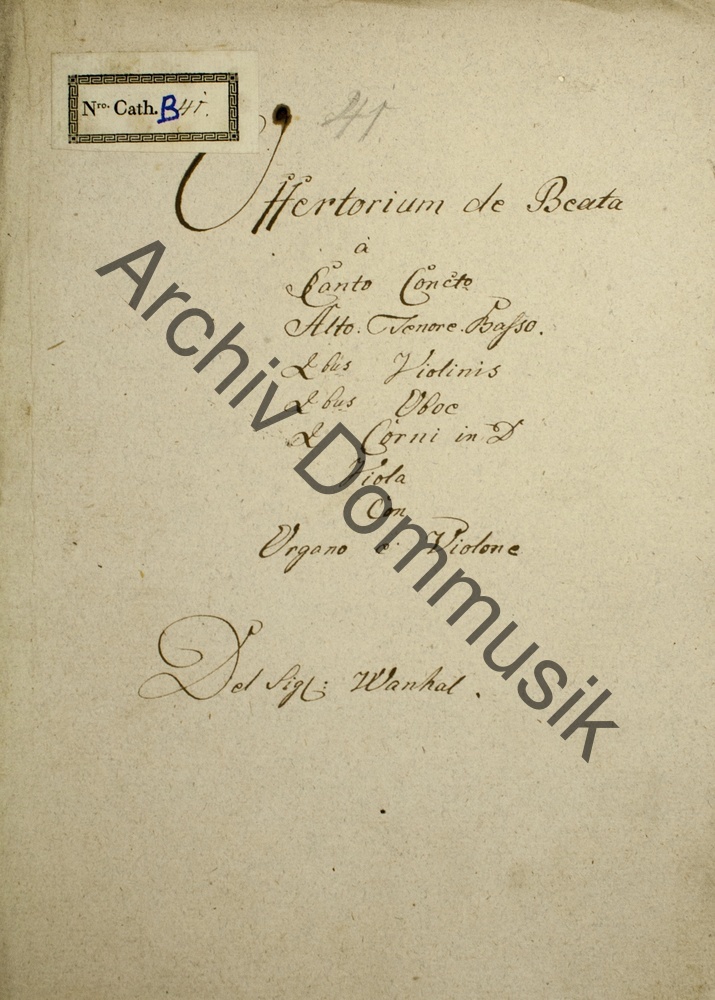 Nro. Cath. B 41.
41
Offertorium de Beata
à
Canto Concto
Alto. Tenore. Basso.
2bus Violinis
2bus Oboe
2 Corni in D
Viola
Con
Organo e Violone
Del Sigl: Wanhal.
Archiv Dommusik